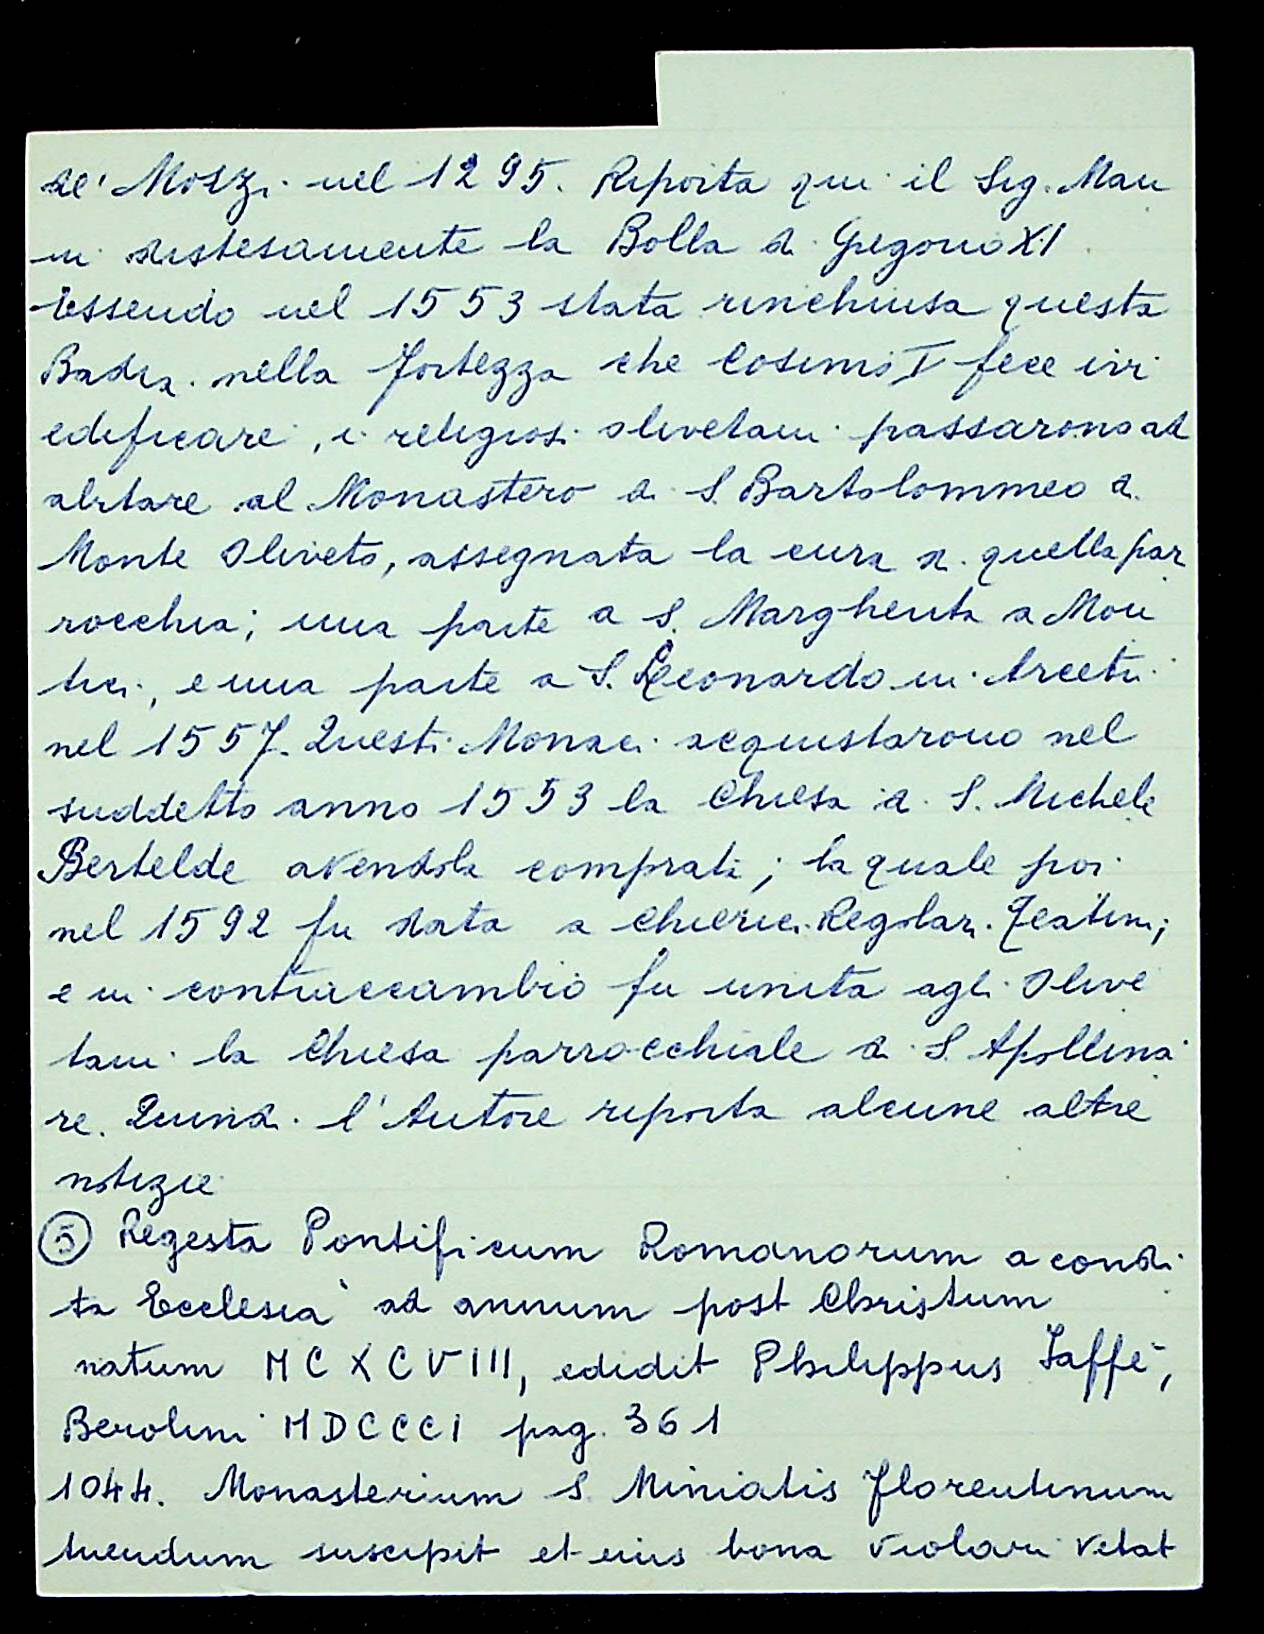 de' Mozzi nel 1295. Riporta qui il Sig. Man
ni distesamente la Bolla di Gregorio XI
Essendo nel 1553 stata rinchiusa questa
Badia nella fortezza che Cosimo I fece ivi
edificare, i religiosi olivetani passarono ad
abitare al Monastero di S. Bartolommeo di
Monte Oliveto, assegnata la cura di quella par
rocchia; una parte a S. Margherita a Mon
tici, e una parte a S. Leonardo in Arcetri
nel 1557. Questi Monaci acquistarono nel
suddetto anno 1553 la Chiesa di S. Michele
Bertelde avendola comprata; la quale poi
nel 1592 fu data a Chierici Regolari Teatini;
e in contraccambio fu unita agli Olive
tani la Chiesa parrocchiale di S. Apollina
re. Quindi l'Autore riporta alcune altre
notizie
⑤ Regesta Pontificum Romanorum a condi
ta Ecclesia ad annum post Christum
natum MCXCVIII, edidit Philippus Jaffé,
Berolini MDCCCI pag. 361
1044. Monasterium S. Miniatis florentinum
tuendum suscipit et eius bona violari vetat